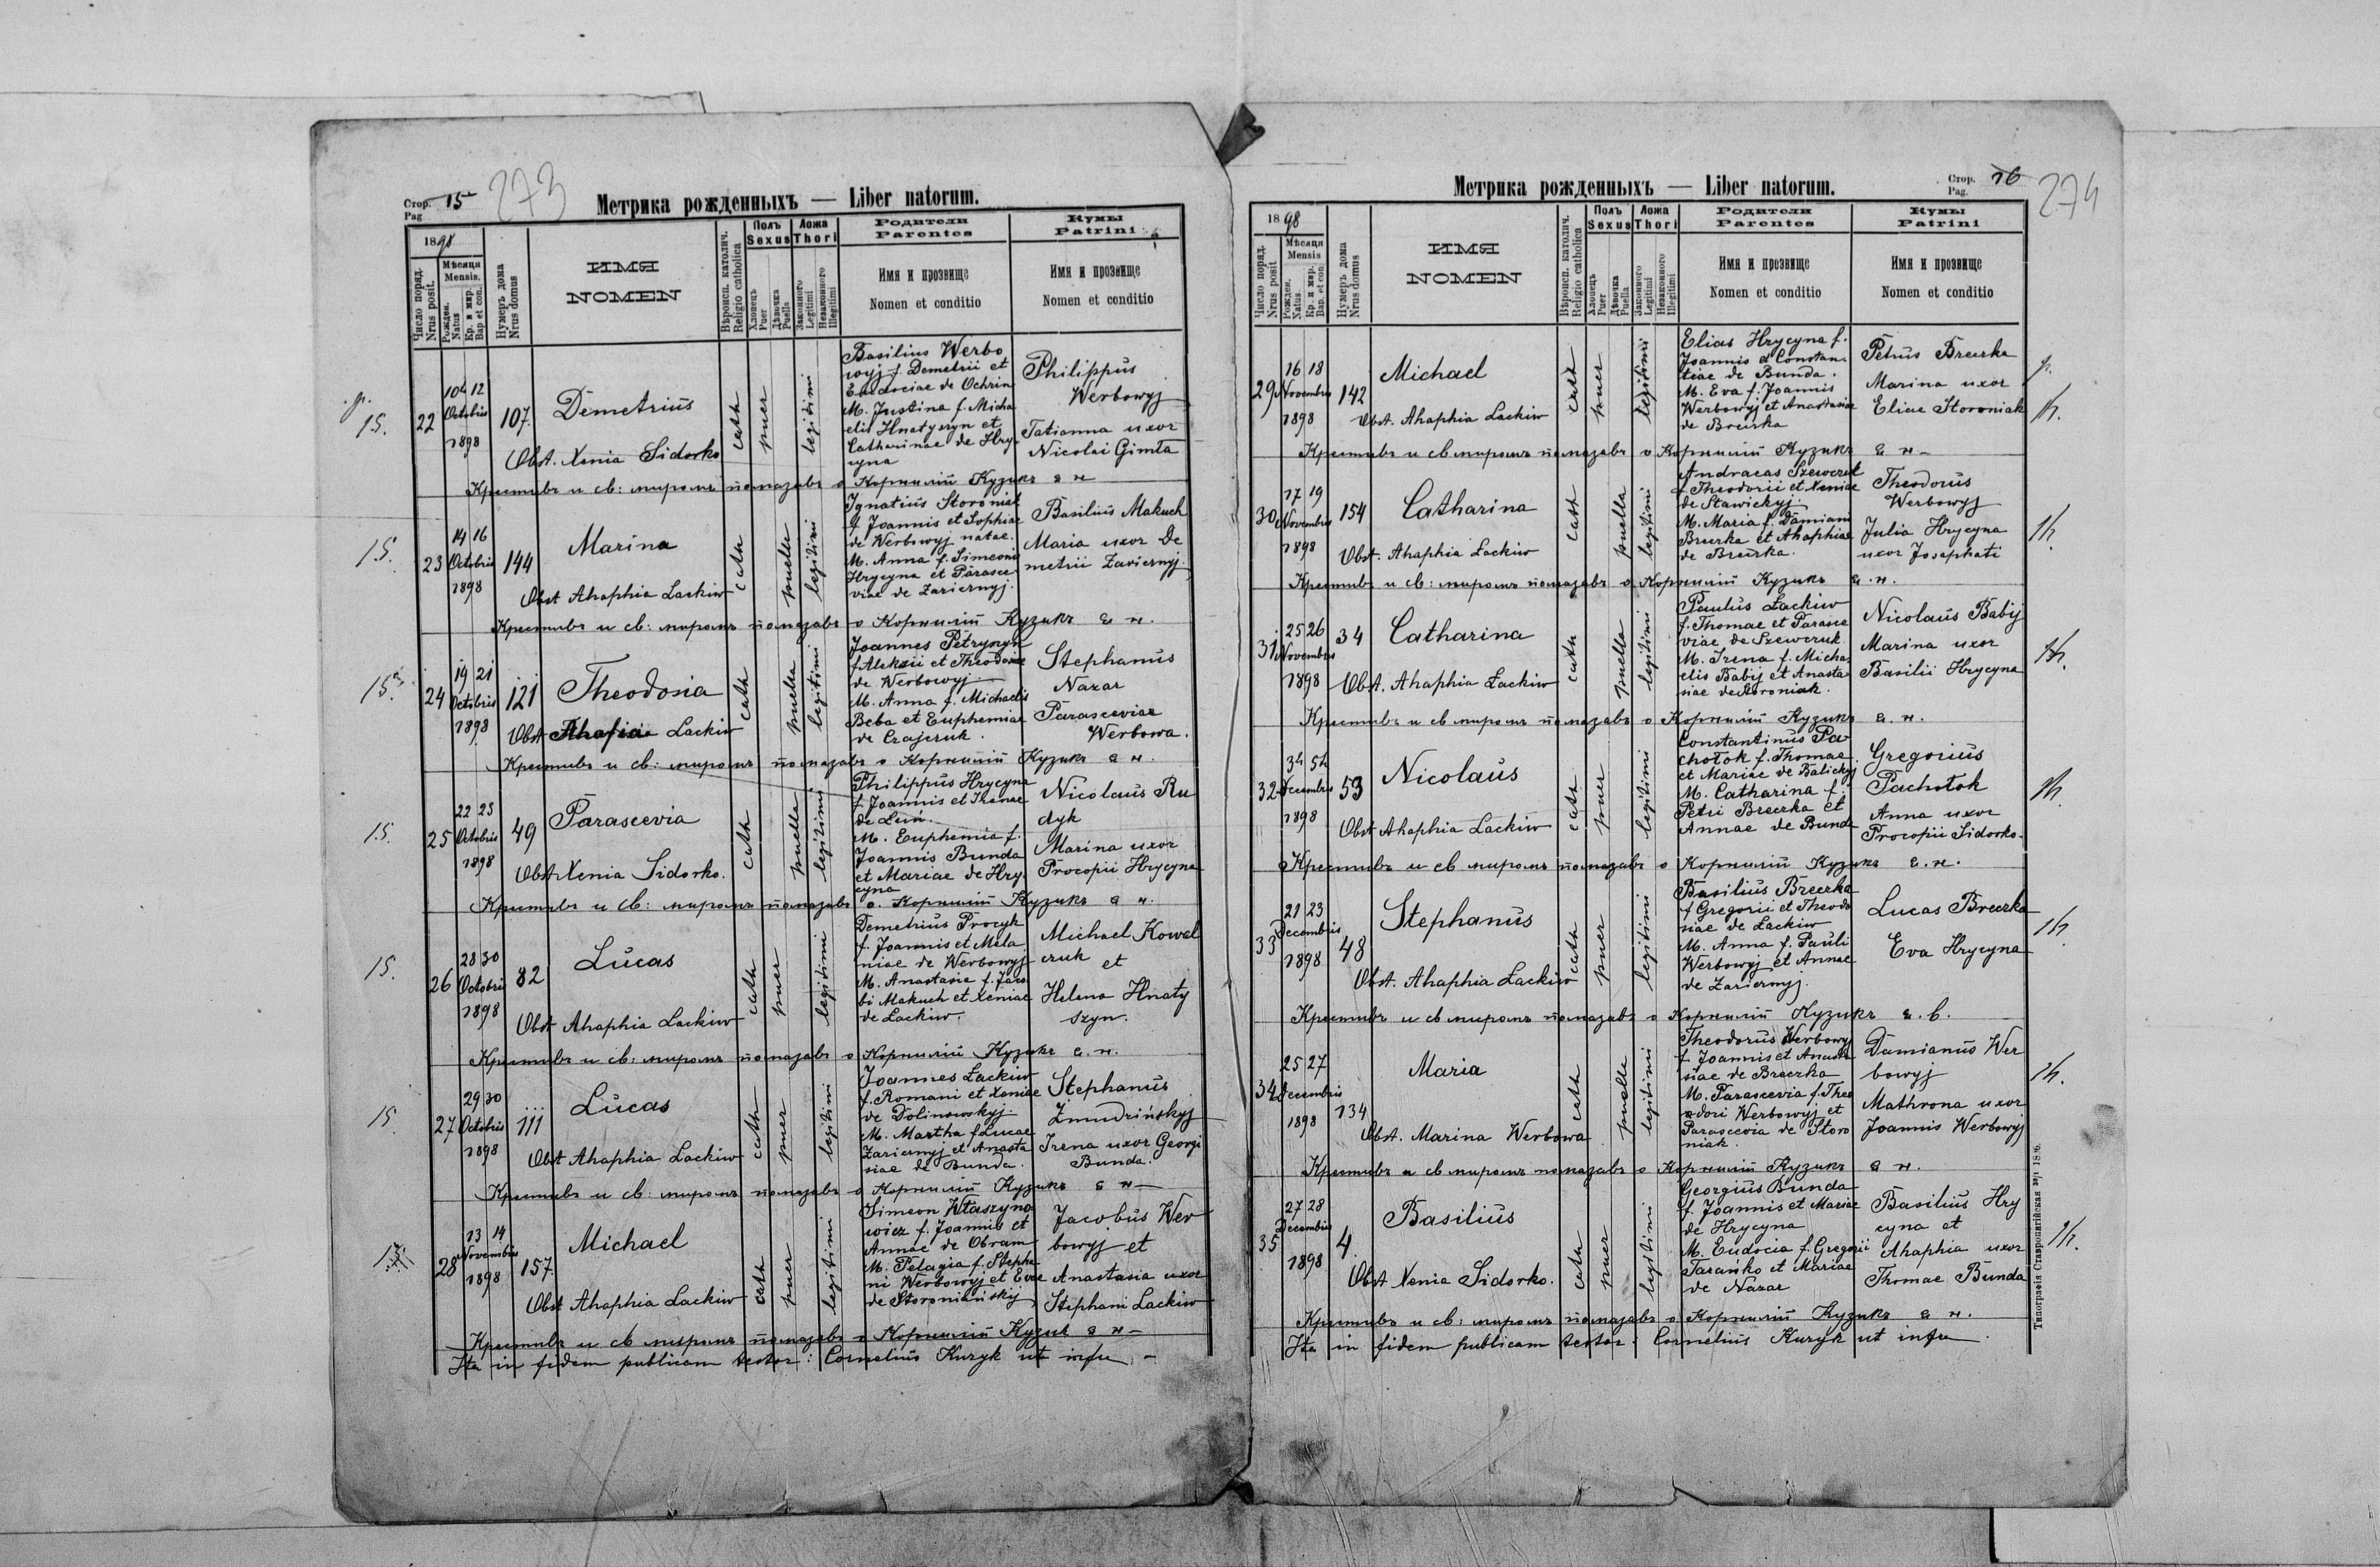 Стор. Pag 15
273
Метрика рожденныхъ — Liber natorum.
1898
Число поряд. Nrus posit.
Мѣсяця Mensis.
Рожден. Natus
Кр. и мир. Bap et con.
Нумеръ дома Nrus domus
ИМЯ
NOMEN
Вѣроисп. католич. Religio catholica
Полъ Sexus
Хлопецъ Puer
Дѣвочка Puella
Ложа Thori
Законного Legitimi
Незаконного Illegitimi
Родители Parentes
Имя и прозвище
Nomen et conditio
Кумы Patrini
Имя и прозвище
Nomen et conditio
15. 22 10 12 Octobris 1898 107. Demetrius cath puer legitimi
Basilius Werbo
wyj f. Demetrii et
Eudociae de Ochrin
M. Justina f. Micha
elis Hnatyszyn et
Catharinae de Hry
cyna
Philippus
Werbowyj
Tatianna uxor
Nicolai Gimta
Obst. Xenia Sidorko
Крестивъ и св: миромъ помазавъ о Корнилій Кузикъ
15. 23 14 16 Octobris 1898 144 Marina cath puella legitimi
Ignatius Storoniak
f Joannis et Sophiae
de Werbowyj natae.
M. Anna f. Simeonis
Hrycyna et Parasce
viae de Zariernyj.
Basilius Makuch
Maria uxor De
metrii Zaviernyj.
Obst Ahaphia Lackiw
Крестивъ и св: миромъ помазавъ о Корнилій Кузикъ
15. 24 19 21 Octobris 1898 121 Theodosia cath puella legitimi
Joannes Petryszyn
f Aleksii et Theodosiae
de Werbowyj
M. Anna f. Michaelis
Beba et Euphemiae
de Czajczuk.
Stephanus
Nazar
Parasceviae
Werbowa.
Obst Ahafia Lackiw
Крестивъ и св: миромъ помазавъ о Корнилій Кузикъ
15. 25 22 23 Octobris 1898 49 Parascevia cath puella legitimi
Philippus Hrycyna
f. Joannis et Irenae
de Luń.
M. Euphemia f.
Joannis Bunda
et Mariae de Hry
cyna
Nicolaus Ru
dyk
Marina uxor
Procopii Hrycyna
Obst Xenia Sidorko.
Крестивъ и св: миромъ помазавъ о. Корнилій Кузикъ
15. 26 28 30 Octobris 1898 82 Lucas cath puer legitimi
Demetrius Procyk
f. Joannis et Mela
niae de Werbowyj
M. Anastasia f. Jaco
bi Makuch et Xeniae
de Lackiw.
Michael Kowal
czuk et
Helena Hnaty
szyn.
Obst Ahaphia Lackiw
Крестивъ и св: миромъ помазавъ о Корнилій Кузикъ
15. 27 29 30 Octobris 1898 111 Lucas cath puer legitimi
Joannes Lackiw
f. Romani et Xeniae
de Dolinowskyj
M. Martha f Lucae
Zariernyj et Anasta
siae de Bunda.
Stephanus
Zmudzińskyj
Irena uxor Georgi
Bunda.
Obst Ahaphia Lackiw
Крестивъ и св: миромъ помазавъ о Корнилій Кузикъ
28 13 14 Novembris 1898 157. Michael cath puer legitimi
Simeon Wtaszyno
wicz f. Joannis et
Annae de Obram
M. Pelagia f. Stepha
ni Werbowyj et Evae
de Storoniańskij
Jacobus Wer
bowyj et
Anastasia uxor
Stephani Lackiw
Obst Ahaphia Lackiw
Крестивъ и св миромъ помазавъ о Корнилій Кузик
Ita in fidem publicam testor: Cornelius Kuzyk ut infra
Метрика рожденныхъ — Liber natorum.
Стор. Pag. 16
274
1898
Число поряд. Nrus posit
Мѣсяця Mensis
Рожден. Natus.
Кр. и мир. Bap. et con
Нумеръ дома Nrus domus
ИМЯ
NOMEN
Вѣроисп. католич. Religio catholica
Полъ Sexus
Хлопецъ Puer
Дѣвочка Puella
Ложа Thori
Законного Legitimi
Незаконного Illegitimi
Родители Parentes
Имя и прозвище
Nomen et conditio
Кумы Patrini
Имя и прозвище
Nomen et conditio
29 16 18 Novembris 1898 142 Michael cath puer legitimi
Elias Hrycyna f.
Joannis et Constan
tiae de Bunda.
M. Eva f. Joannis
Werbowyj et Anastasiae
de Breczka
Petrus Breczka
Marina uxor
Eliae Storoniak
Obst. Ahaphia Lackiw
Крестивъ и св миромъ помазавъ о Корнилій Кузикъ
30 17 19 Novembris 1898 154 Catharina cath puella legitimi
Andraeas Szewczuk
f Theodorii et Xeniae
de Stawickyj.
M. Maria f. Damiani
Breczka et Ahaphiae
de Breczka.
Theodorus
Werbowyj
Julia Hrycyna
uxor Josaphati
Obst. Ahaphia Lackiw
Крестивъ и св: миромъ помазавъ о Корнилій Кузикъ
31 25 26 Novembris 1898 34 Catharina cath puella legitimi
Paulus Lackiw
f. Thomae et Parasce
viae de Szewczuk
M. Irena f. Micha
elis Babij et Anasta
siae de Storoniak.
Nicolaus Babij
Marina uxor
Basilii Hrycyna
Obst. Ahaphia Lackiw
Крестивъ и св миромъ помазавъ о Корнилій Кузикъ
32 Decembris 1898 53 Nicolaus cath puer legitimi
Constantinus Pa
chotok f. Thomae
et Mariae de Balickyj
M. Catharina f.
Petri Breczka et
Annae de Bunda
Gregorius
Pachotok
Anna uxor
Procopii Sidorko.
Obst Ahaphia Lackiw
Крестивъ и св миромъ помазавъ о Корнилій Кузикъ
33 21 23 Decembris 1898 48 Stephanus cath puer legitimi
Basilius Breczka
f Gregorii et Theodo
siae de Lackiw
M. Anna f. Pauli
Werbowyj et Annae
de Zariernyj.
Lucas Breczka
Eva Hrycyna
Obst. Ahaphia Lackiw
Крестивъ и св миромъ помазавъ о Корнилій Кузикъ
34 25 27 Decembris 1898 134 Maria cath puella legitimi
Theodorus Werbowyj
f. Joannis et Anasta
siae de Breczka
M. Parascevia f. Theo
odori Werbowyj et
Parascevia de Storo
niak.
Damianus Wer
bowyj
Mathrona uxor
Joannis Werbowyj
Obst. Marina Werbowa
Крестивъ и св миромъ помазавъ о Корнилій Кузикъ
35 27 28 Decembris 1898 4. Basilius cath puer legitimi
Georgius Bunda
f. Joannis et Mariae
de Hrycyna
M. Eudocia f. Gregorii
Tarańko et Mariae
de Nazar
Basilius Hry
cyna et
Ahaphia uxor
Thomae Bunda
Obst Xenia Sidorko.
Крестивъ и св: миромъ помазавъ о Корнилій Кузикъ
Ita in fidem publicam testor: Cornelius Kuzyk ut infra
Типографія Ставропигійская